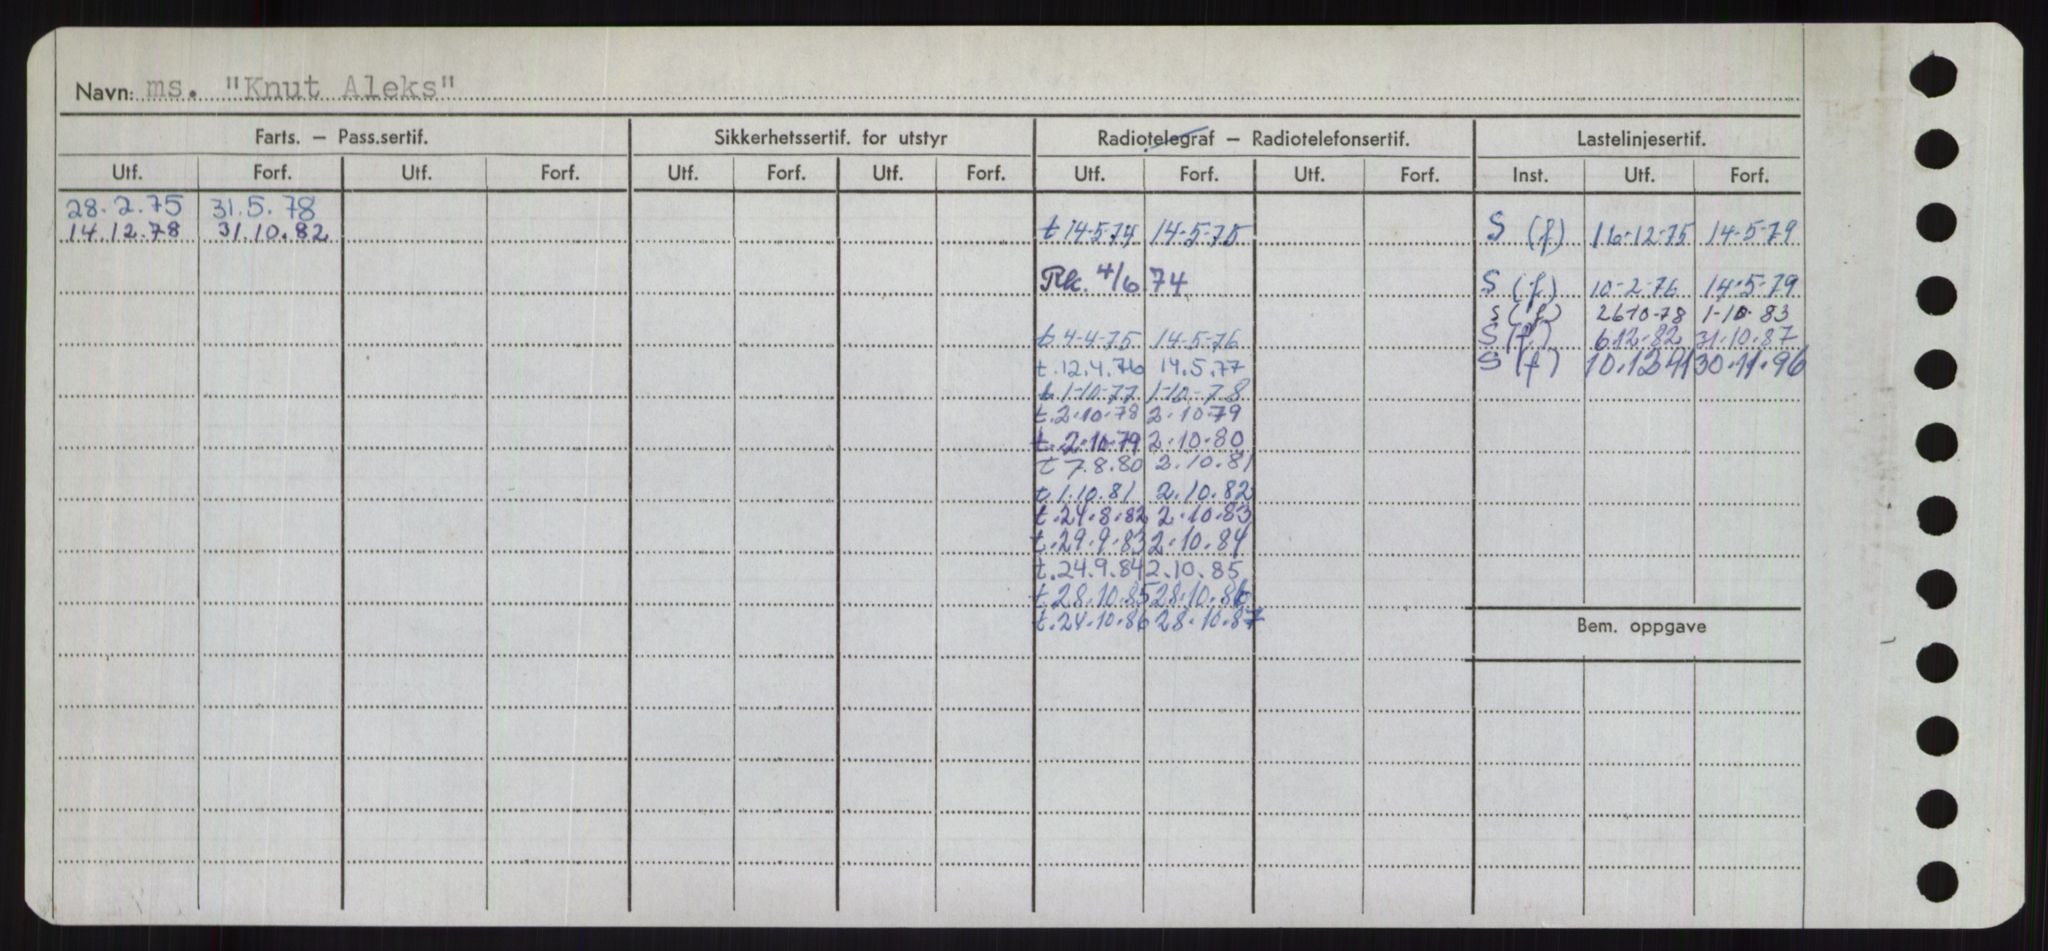 Navn: ms. "Knut Aleks"
Farts. — Pass.sertif. Sikkerhetssertif. for utstyr Radiotelegraf — Radiotelefonsertif. Lastelinjesertif.
Utf. Forf. Utf. Forf. Utf. Forf. Utf. Forf. Utf. Forf. Utf. Forf. Inst. Utf. Forf.
28.2.75 31.5.78
14.12.78 31.10.82 t 14-5-74 14-5-75 S (f) 16-12-75 14-5-79
Rk. 4/6 74 S (f) 10-2-76 14-5-79
S (f) 26-10-78 1-10-83
t 4-4-75 14-5-76 S (f) 6.12.82 31.10.87
t.12.4.76 14.5.77 S (f) 10.12.91 30.11.96
t 1-10-77 1-10-78
t.2.10.78 2.10.79
t.2.10.79 2.10.80
t 7.8.80 2.10.81
t.1.10.81 2.10.82
t.24.8.82 2.10.83
t.29.9.83 2.10.84
t.24.9.84 2.10.85
t.28.10.85 28.10.86
t.24.10.86 28.10.87
Bem. oppgave